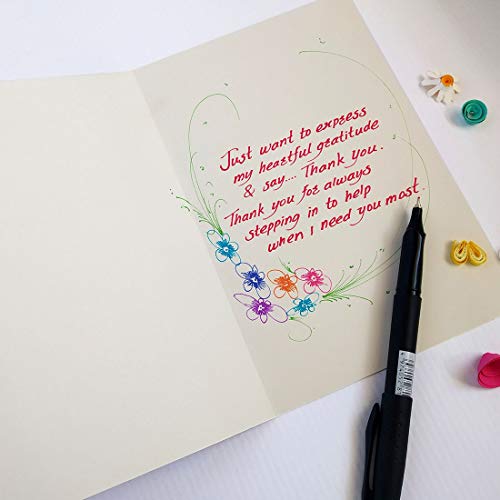 Just want to express
my heartful gratitude
& say.... Thank you.
Thank you for always
stepping in to help
when I need you most.